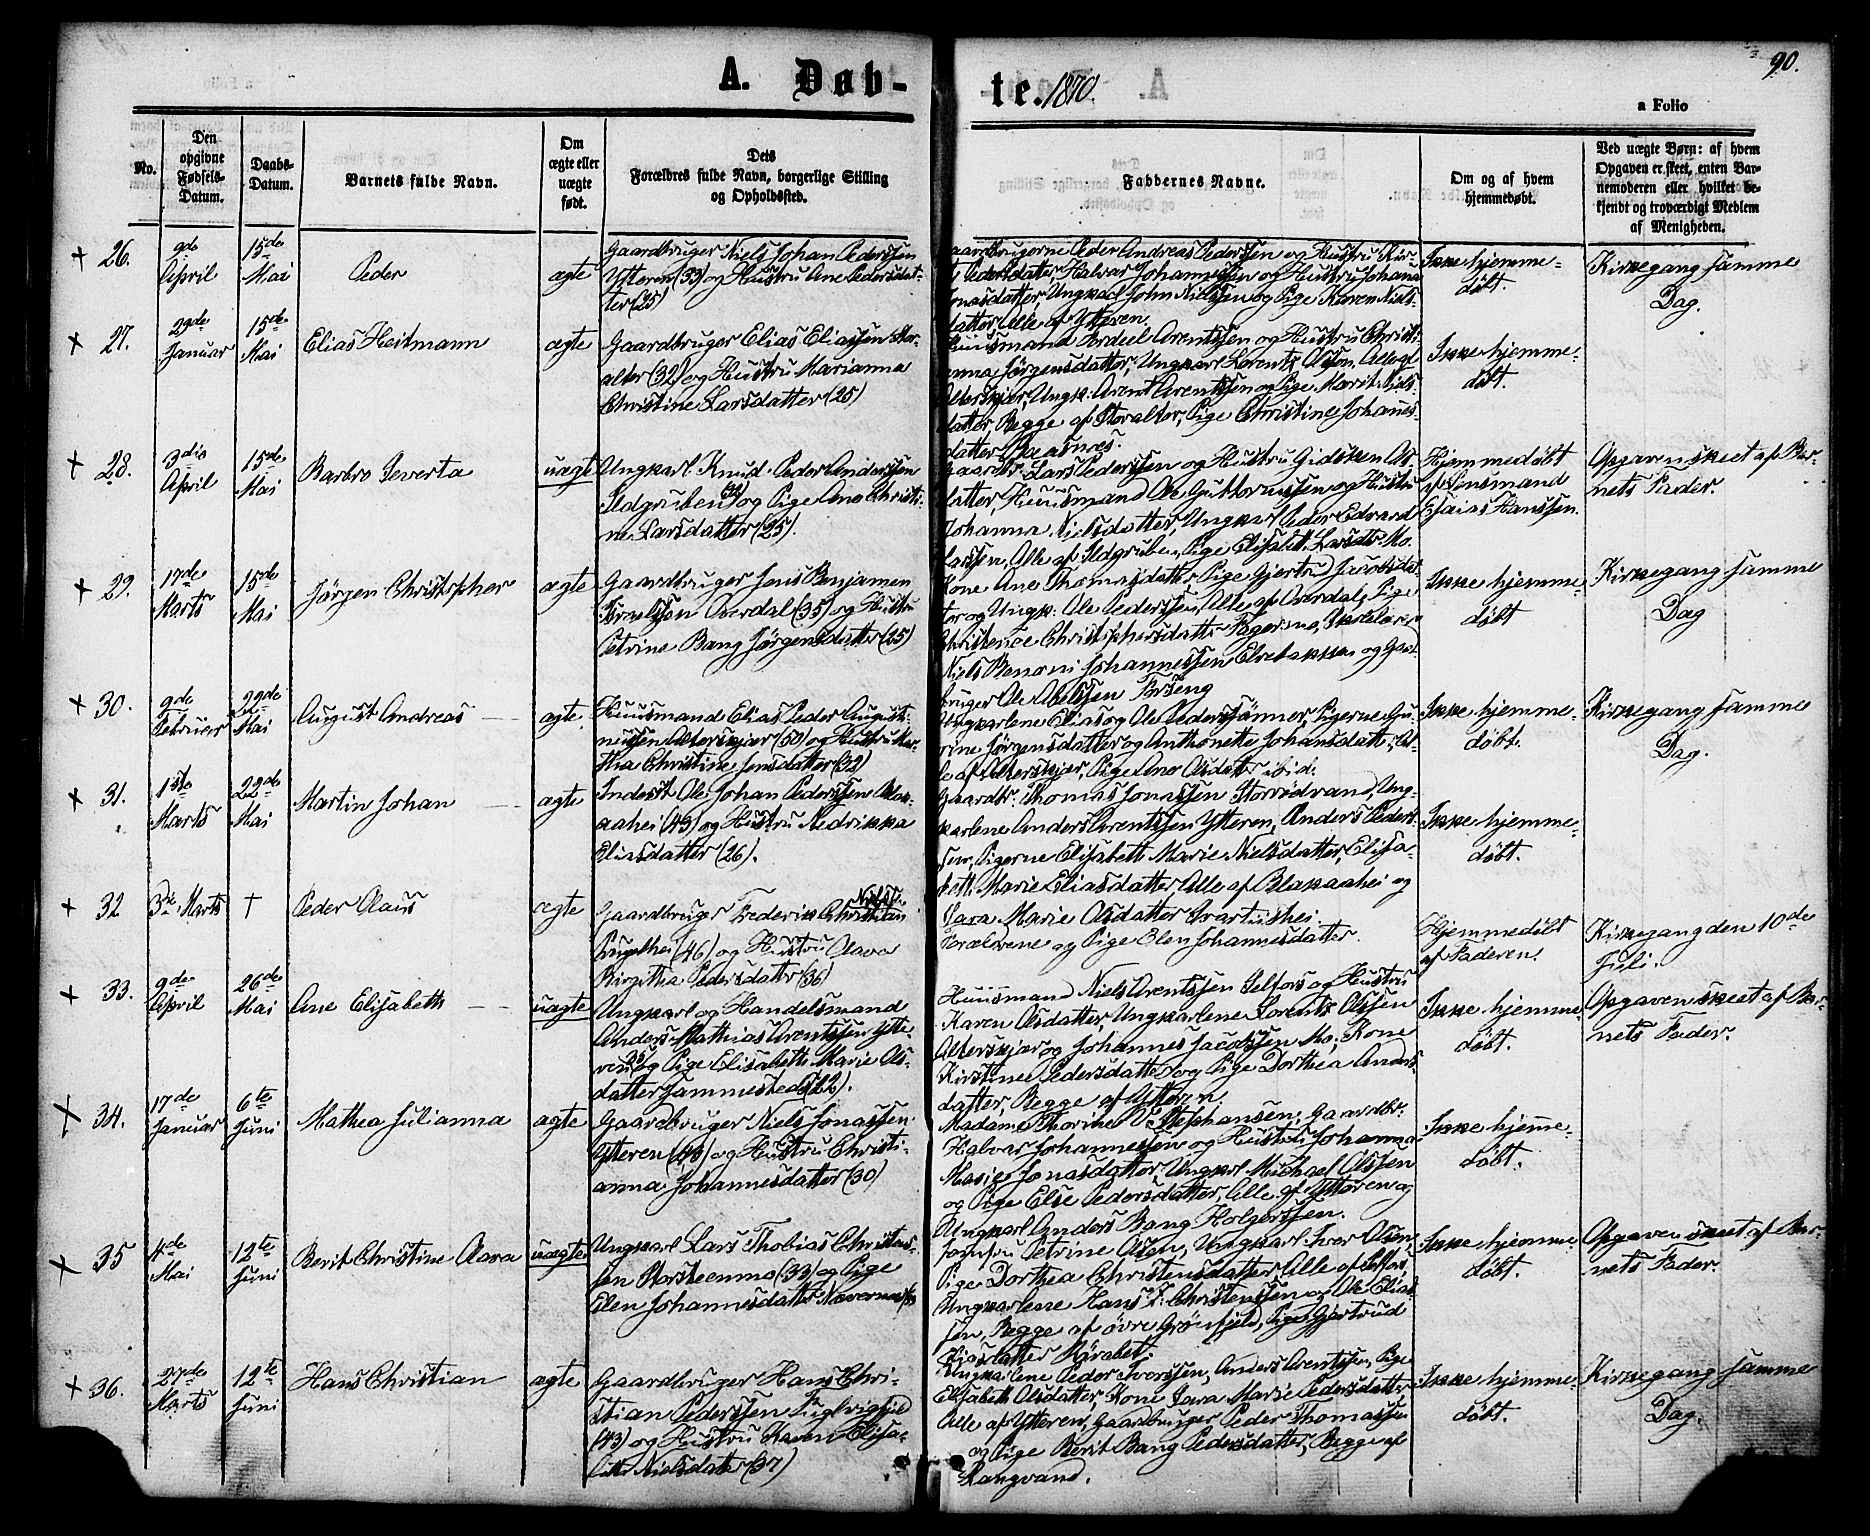 A. Døb-
te. 1870.
90.
a Folio
No.
Den
opgivne
Fødsels-
Datum.
Daabs-
Datum.
Barnets fulde Navn.
Om
ægte eller
uægte
født.
Dets
Forældres fulde Navn, borgerlige Stilling
og Opholdssted.
Faddernes Navne.
Om og af hvem
hjemmedøbt.
Ved uægte Børn: af hvem
Opgaven er skeet, enten Bar-
nemoderen eller hvilket be-
kjendt og troværdigt Medlem
af Menigheden.
+ 26.
9de
April
15de
Mai
Peder
ægte
Gaardbruger Niels Johan Pederssen
Ytteren (33) og Hustru Ane Pedersdat-
ter (35)
aardbrugerne Peder Andreas Pederssen og Hustru Kir-
Pedersdatter, Halvar Johannessen og Hustru Johana
Jonasdatter, Ungkarl John Nielssen og Pige Karen Niels-
datter Alle af Ytteren.
Ikke hjemme-
døbt.
Kirkegang samme
Dag.
+ 27.
29de
Januar
15de
Mai
Elias Heitmann
ægte
Gaardbruger Elias Eliassen Stor-
alter (32) og Hustru Marianna
Christine Larsdatter (25)
Huusmand Fordeel Arentssen og Hustru Christi-
anna Jørgensdatter, Ungkarl Lorents Olssen, Alle af
Alterskjær, Ungk: Arent Arentssen og Pige Marit Niels-
datter, Begge af Storalter, Pige Christine Johanes-
datter Baasnes.
Ikke hjemme-
døbt.
+ 28.
3die
April
15de
Mai
Barbro Severta
uægte
Ungkarl Knud Peder Anderssen
Ildgruben og Pige Ane Christi-
ne Larsdatter (25).
Gaardbr: Lars Pederssen og Hustru Gidsken Ols-
datter, Huusmand Ole Guttormssen og Hustru
Johanna Nielsdatter, Ungkarl Peder Edvard
Larssen, Alle af Ildgruben, Pige Elisabet Larsdtr: Mo.
Hjemmedøbt
af Lensmand
Esaias Hanssen.
Opgaven skeet af Bar-
nets Fader.
+ 29.
17de
Marts
15de
Mai
Jørgen Christopher
ægte
Gaardbruger Jens Benjamen
Israelssen Overdal (35) og Hustru
Petrine Bang Jørgensdatter (25)
Kone Ane Thomasdatter, Pige Gjertru Jacobsdat-
ter og Ungk: Ole Pederssen, Alle af Overdal, Pige
Christense Christophersdattr Fagermo, Skolelærer
Niels Benoni Johannessen Elvebakken og Gaard-
bruger Ole Abelssen Forseng
Ikke hjemme-
døbt
Kirkegang samme
Dag
+ 30.
9de
Februar
22de
Mai
August Andreas
ægte
Huusmand Elias Peder August-
nussen Alterskjær (50) og Hustru Mar-
tha Christine Jensdatter (32)
Ungkarlene Elias og Ole Pederssønner, Pigerne Gu-
rine Jørgensdatter og Anthonette Johansdattr, Al-
le af Alterskjær, Pige Ane Olsdattr ibid.
Ikke hjemme-
døbt.
Kirkegang samme
Dag.
+ 31.
1ste
Marts
22de
Mai
Martin Johan
ægte
Inderst Ole Johan Pederssen Blak-
aahei (43) og Hustru Nedrikka
Eliasdatter (26).
Gaardbr: Thomas Jonassen Storrødvand, Ung-
karlene Anders Arentssen Ytteren, Anders Peders-
sen, Pigerne Elisabeth Marie Nielsdatter, Elisa-
beth Marie Eliasdatter, Alle af Blakaahei og
Sara Marie Olsdatter Svartishei.
Ikke hjemme-
døbt.
+ 32
3die Marts
†
Peder Claus
ægte
Gaardbruger Frederik Christian Nielsen
(46) og Hustru Aava
Birgitha Pedersdattr (36)
Forældrene og Pige Elen Johannesdatter.
Hjemmedøbt
af Faderen.
Kirkegang den 10de
Juli.
+ 33.
9de
April
26de
Mai
Ane Elisabeth
uægte
Ungkarl og Handelsmand
Anders Mathias Arentssen Ytte-
ren og Pige Elisabeth Marie Ols-
datter sammesteds (22).
Huusmand Niels Arentssen Selfors og Hustru
Karen Olsdatter, Ungkarlene Lorents Olssen
Alterskjær og Johannes Jacobssen Mo, Kone
Kirstine Pedersdatter og Pige Dorthea Anders-
datter, Begge af Ytteren.
Ikke hjemme-
døbt.
Opgaven skeet af Bar-
nets Fader.
+ 34.
17de
Januar
6te
Juni
Mathea Julianna
ægte
Gaardbruger Niels Jonassen
Ytteren (48) og Hustru Christi-
anna Johannesdatter (30)
Madame Thorine V. Stephansen, Gaardbr:
Halvar Johannessen og Hustru Johanna
Marie Jonasdatter, Ungkarl Michael Olssen
og Pige Else Pedersdatter, Alle af Ytteren og
Ungkarl Anders Bang Holgerssen.
Ikke hjemme-
døbt.
+ 35
4de
Mai
12te
Juni
Berit Christine Aava
uægte
Ungkarl Lars Thobias Christens-
sen Storsteenmo (33) og Pige
Elen Johannesdatter Nævernæs
Jomfru Petrine Olsen, Ungkarl Iver Olsen,
Pige Dorthea Christensdatter Alle af Selfors,
Ungkarlene Hans J: Christenssen og Ole Elias-
sen, Begge af øvre Grønfjeld, Pige Gjertrud
Eliasdatter
Ikke hjemme-
døbt.
Opgaven skeet af Bar-
nets Fader.
+ 36.
27de
Marts
12te
Juni
Hans Christian
ægte
Gaardbruger Hans Chri-
stian Pederssen Fuglvigfjeld
(43) og Hustru Karen Elisa-
beth Nielsdatter (37)
Ungkarlene Peder Iverssen, Anders Arentssen, Pige
Elisabeth Olsdatter, Kone Sara Marie Pedersdatter,
Alle af Ytteren, Gaardbruger Peder Thomassen
og Pige Berit Bang Pedersdatter, Begge af
Langvand.
Ikke hjemme-
døbt.
Kirkegang samme
Dag.